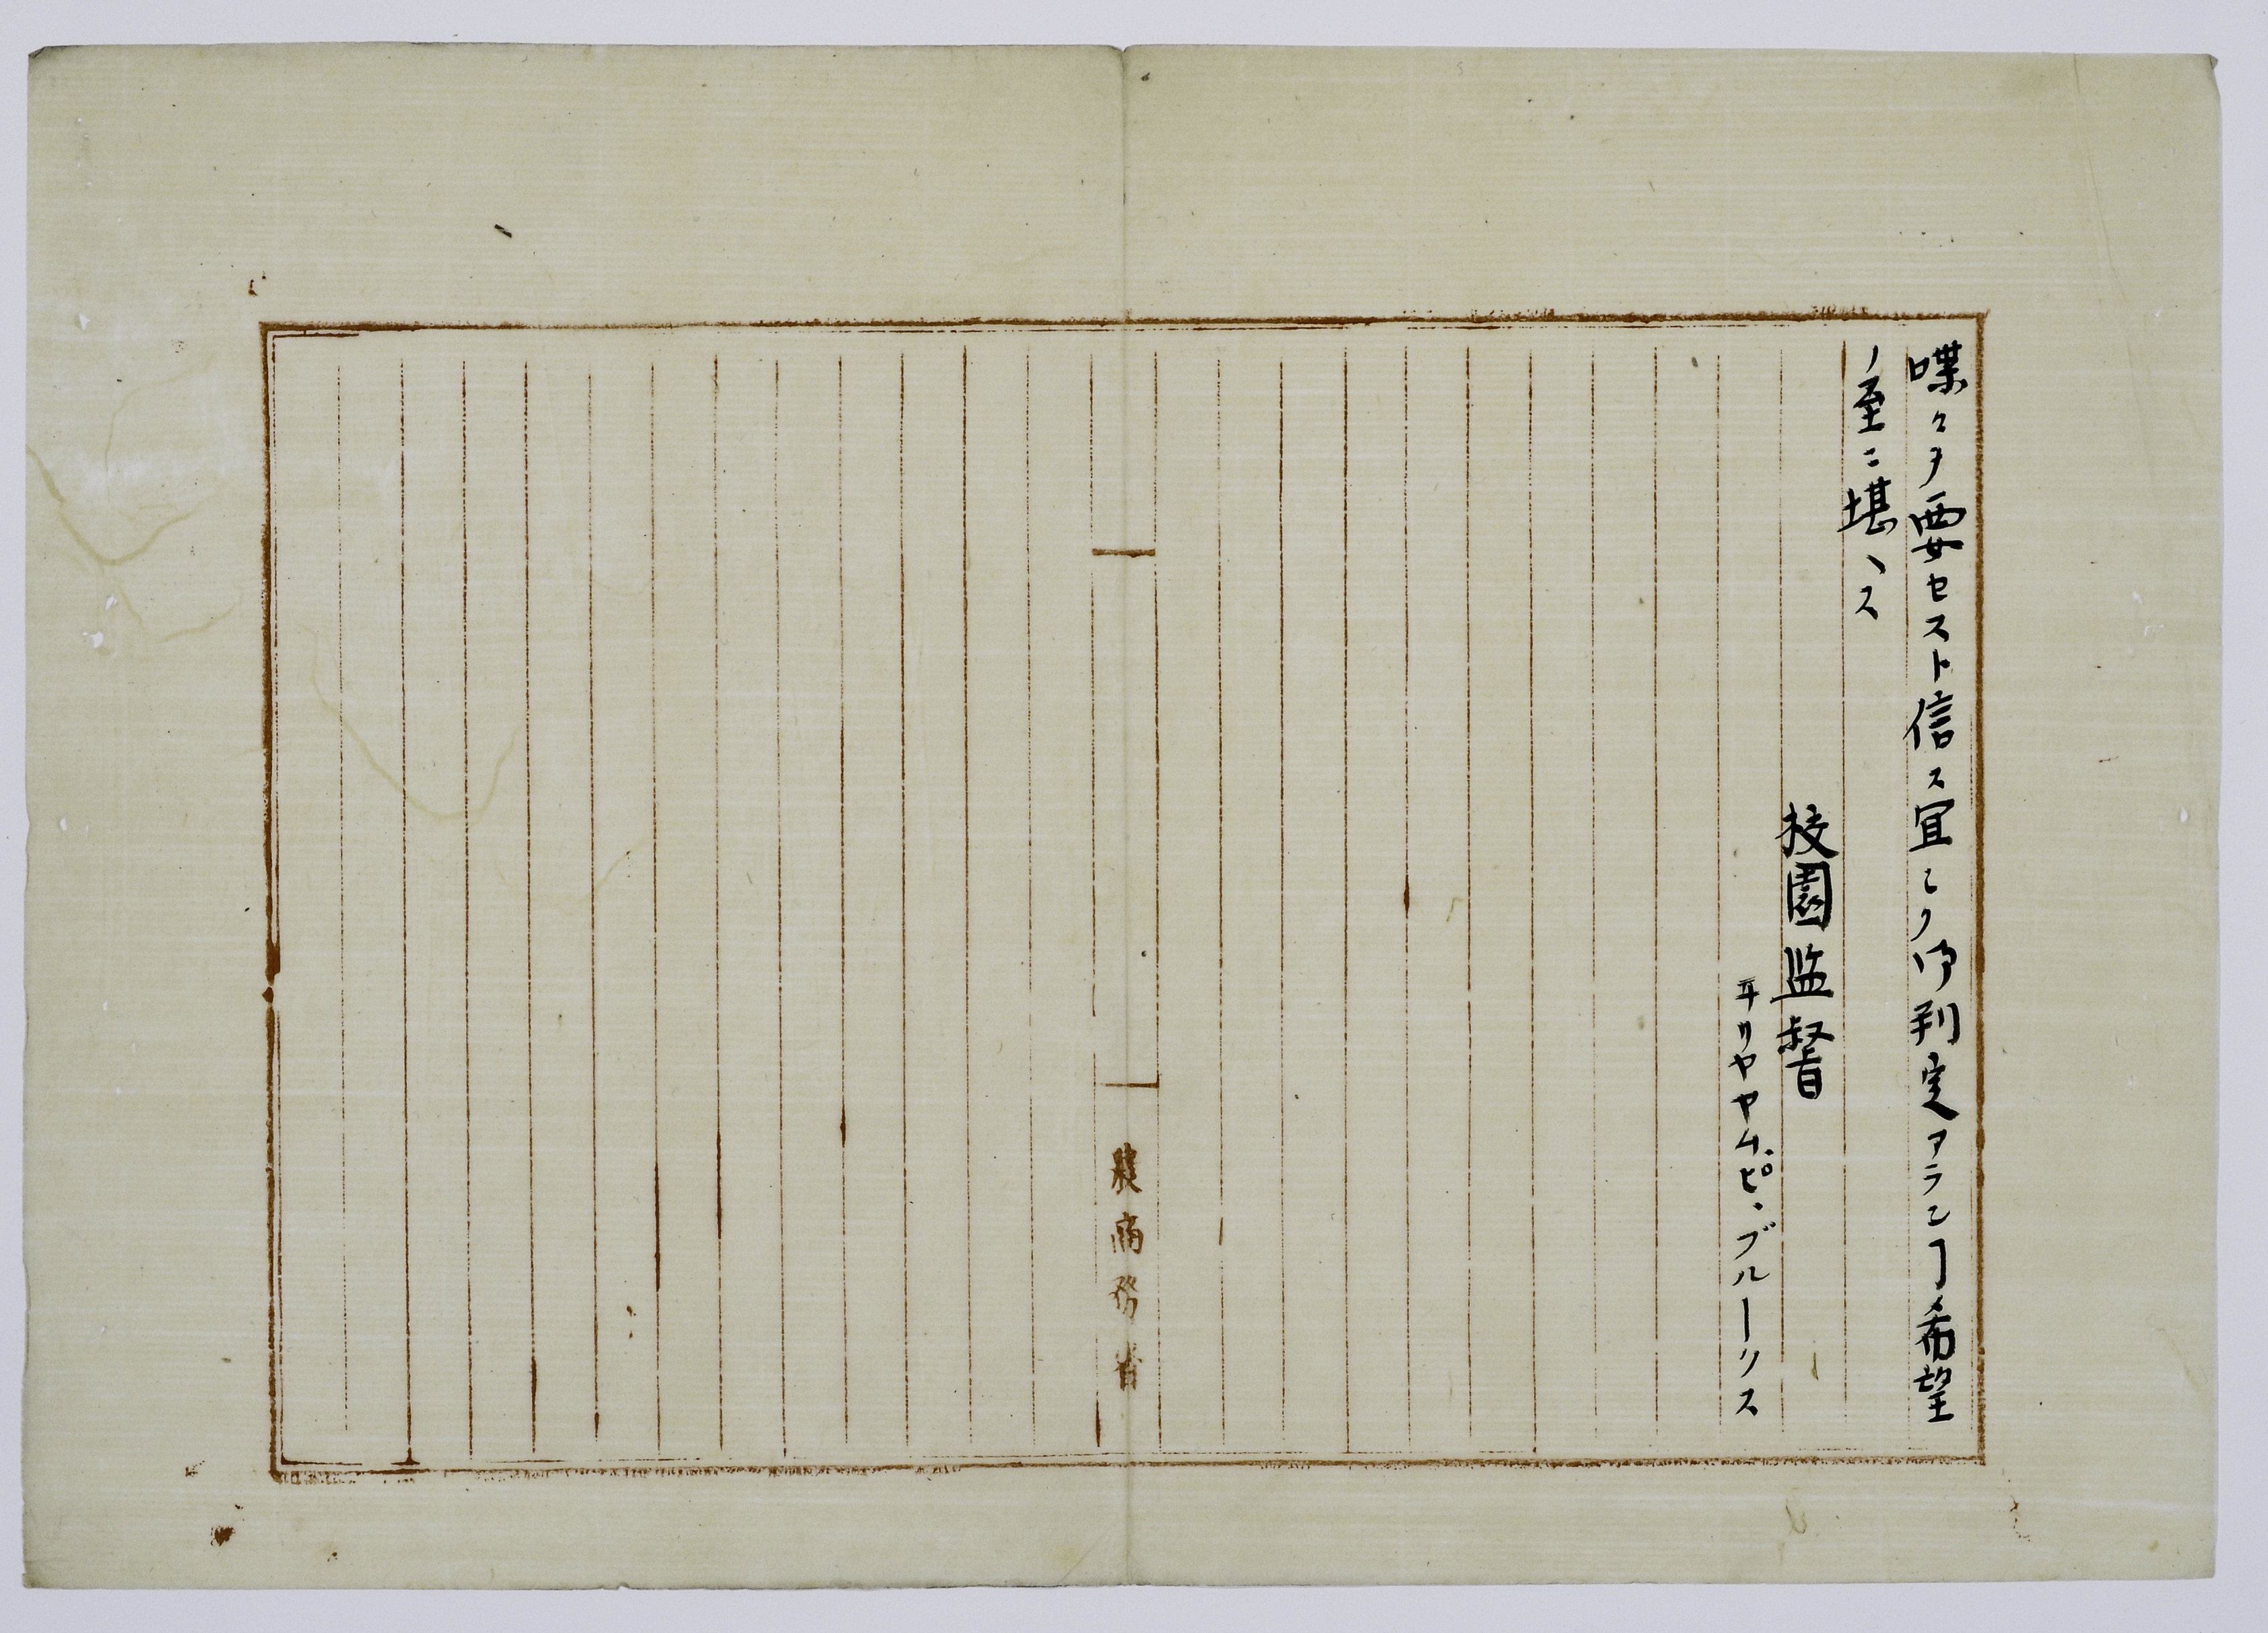 喋々ヲ要セスト信ス冝シク御判定アランヿ希望
ノ至ニ堪ヘス
校園監督
ヰリヤヤム、ピ、ブルークス
農商務省